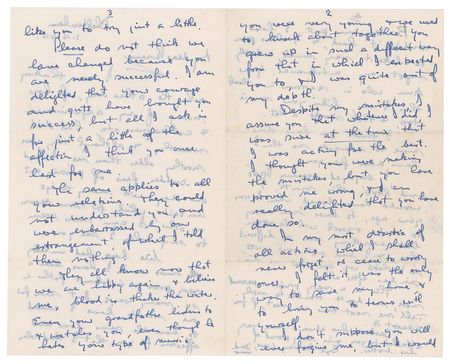 2
you were very young & we used
to knock about together. You
grew up in such a different way
from that in which I expected
you to, & I was quite out of
my depth.
Despite my mistakes, I
assure you that whatever I did I
was sure at the time that
I was acting for the best.
I thought you were making
the mistakes but you have
proved me wrong, & I am
really delighted that you have
done so.
In my most drastic of
all actions, which I shall
never forget, or cease to worry
over, I felt it was the only
way to save my home &
to bring you to terms with
yourself.
I don't suppose you will
ever forgive me, but I would
3
like you to try just a little.
Please do not think we
have changed because you
are newly successful. I am
delighted that your courage
and guts have bought you
success, but all I ask is
for just a little of the
affection I think you once
had for me.
The same applies to all
your relations. They could
not understand you, and
were embarrassed by our
estrangement, of which I told
them nothing.
They all know now that
we are happy again, & believe
me, blood is thicker than water.
Even your grandfather listens to
& watches you, even though he
hates your type of music.